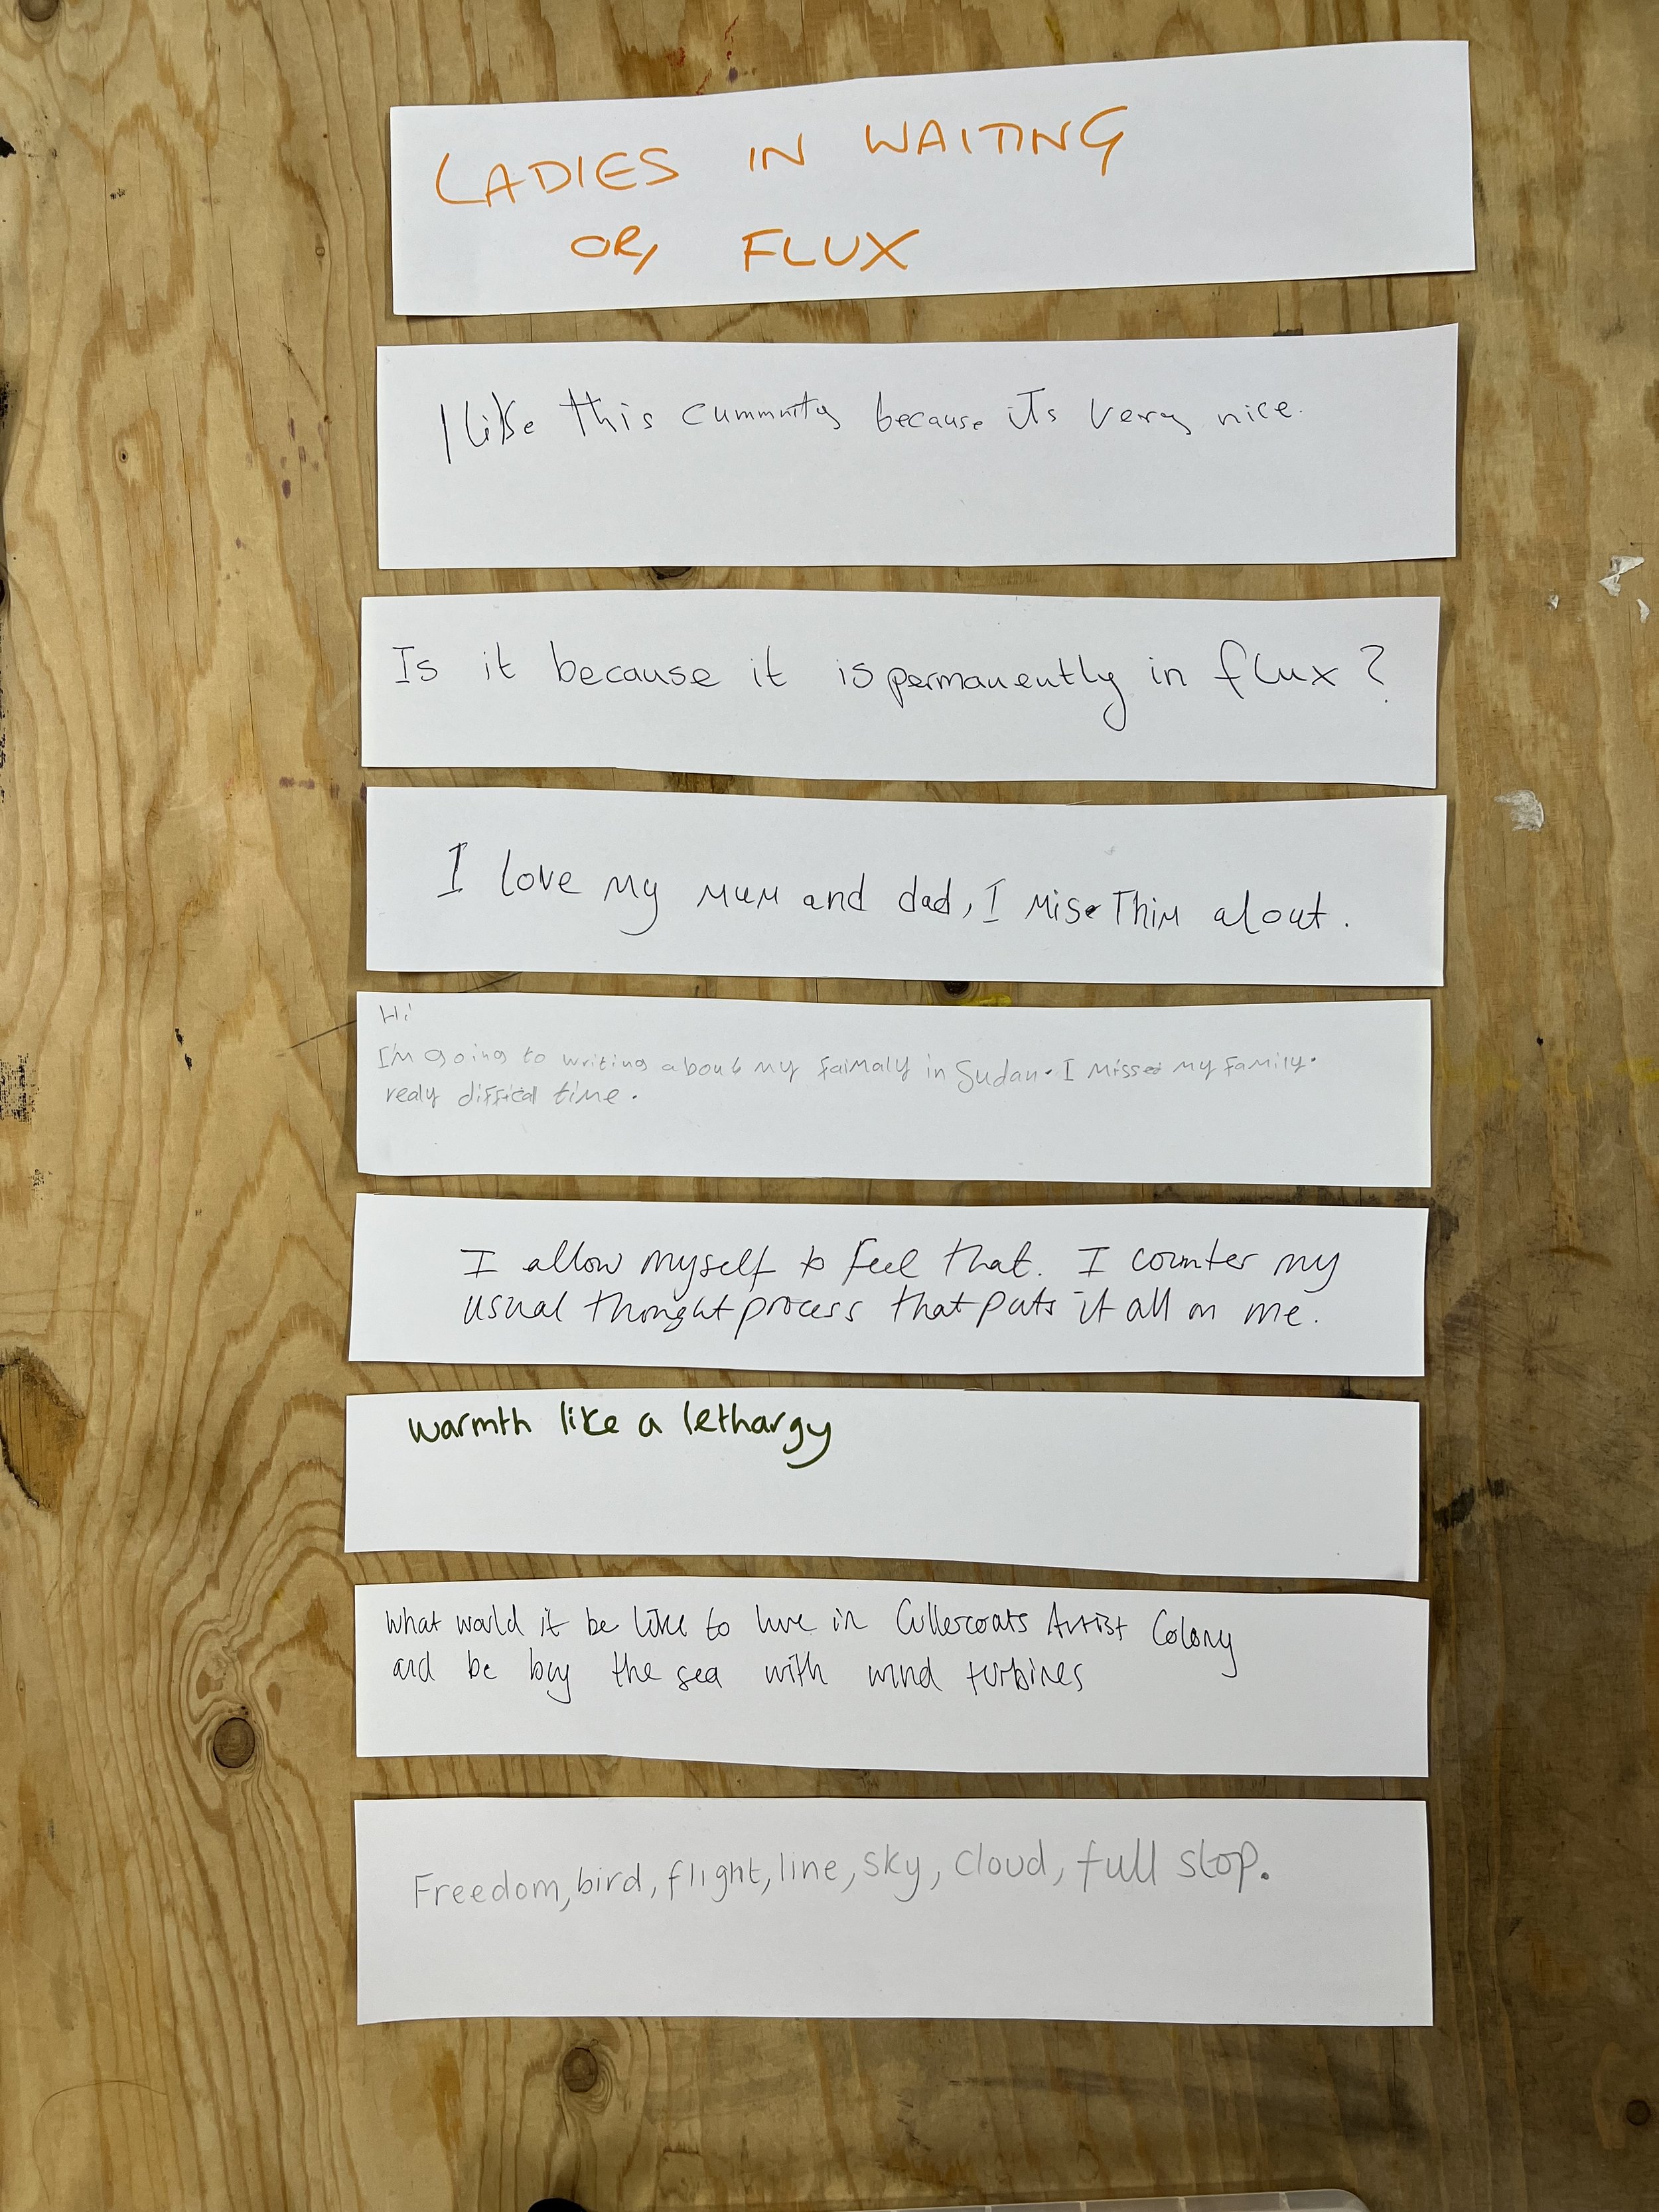 LADIES IN WAITING
OR, FLUX
I like this cummnity because its very nice.
Is it because it is permanently in flux?
I love my mum and dad, I mise Thim alout.
Hi
I'm going to writing about my faimaly in Sudan. I misse my family.
realy diffical time.
I allow myself to feel that. I counter my
usual thought process that puts it all on me.
warmth like a lethargy
What would it be like to live in Cullercoats Artist Colony
and be buy the sea with wind turbines
Freedom, bird, flight, line, sky, cloud, full stop.